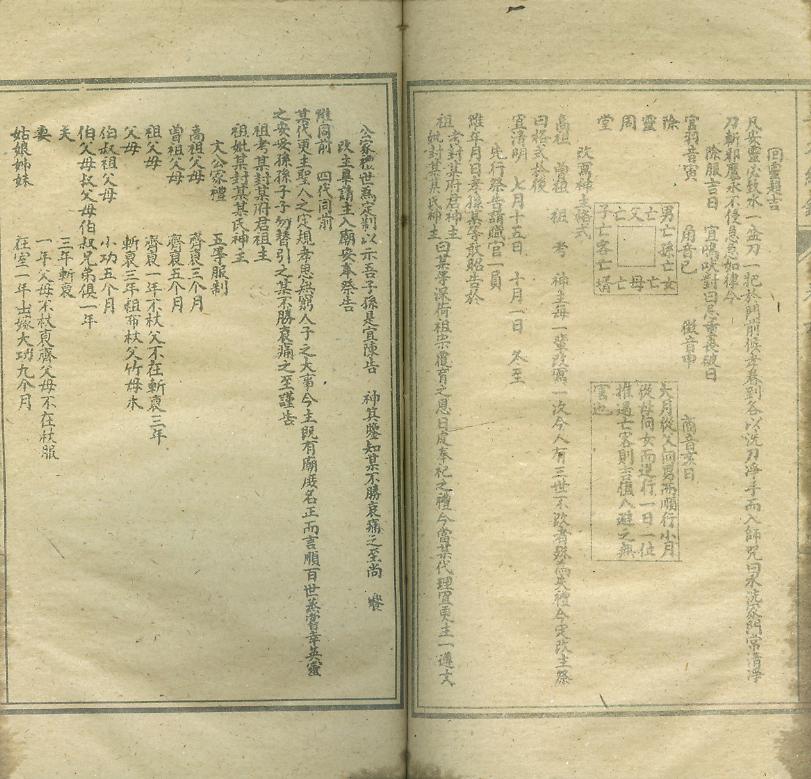 回靈趨吉
凡安靈必敖水一盆刀一把於門前候孝眷到各以洗刀淨手而入師咒曰水洗家門常清淨
刀斬邪魔永不侵急急如律令
除服吉日 宜鳴吠對日忌重喪破日
宮羽音寅 角音巳 徵音申 商音亥日
除靈周堂
男亡孫亡女
亡父亡
亡母亡
子亡客亡壻
大月從父向男而順行小月
從母向女而逆行一日一位
推遇亡客則吉值人避之無
害也
改寫神主格式
高祖 曾祖 祖 考 神主每一輩改寫一次今人有三世不改者殊失禮今定改主祭
曰格式於後
宜清明 七月十五日 十月一日 冬至
先行祭告請職官一員
維年月日孝孫某等敢昭告於
祖考某封某府君神主
妣封某某氏神主曰某等深荷祖宗覆育之恩日虔奉祀之禮今當某代理宜更主一遵文
公家禮世為定制以示吾子孫是宜陳告 神其鑒知某不勝哀痛之至尚 饗
改主畢請主入廟安奉祭告
維同前 四代同前
某代更主聖人之定規孝思無窮人子之大事今主既有廟庶名正而言順百世蒸嘗幸英靈
之妥安孫孫子子勿替引之某不勝哀痛之至謹告
祖考某封某府君祖主
祖妣某封某某氏神主
文公家禮 五等服制
高祖父母 齊衰三個月
曾祖父母 齊衰五個月
祖父母 齊衰一年不杖父不在斬衰三年
父母 斬衰三年祖布杖父竹母木
伯叔祖父母 小功五个月
伯父母叔父母伯叔兄弟俱一年
夫 三年斬衰
妻 一年父母不杖息齊父母不在杖服
姑娘姊妹 在室一年出嫁大功九个月